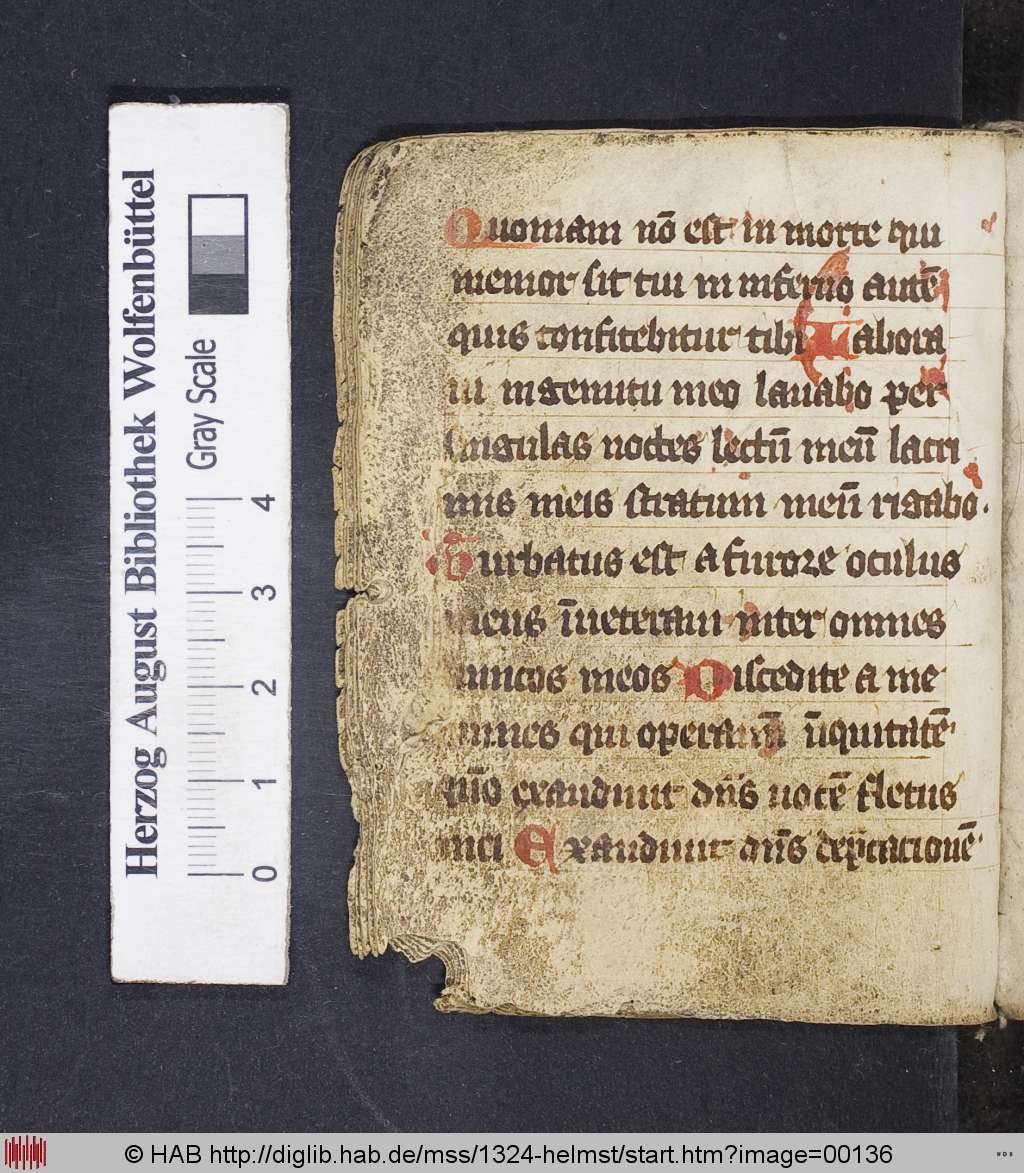 Herzog August Bibliothek Wolfenbüttel
Gray Scale
0 1 2 3 4
Quoniam nō est in morte qui
memor sit tui in inferno autē
quis confitebitur tibi Labora
ui in gemitu meo lauabo per
singulas noctes lectū meū lacri
mis meis stratum meū rigabo.
Turbatus est a furore oculus
meus īueteraui inter omnes
inimicos meos Discedite a me
omnes qui
qm̄o exaudiuit dn̄s uocē fletus
mei Exaudiuit dn̄s
© HAB http://diglib.hab.de/mss/1324-helmst/start.htm?image=00136